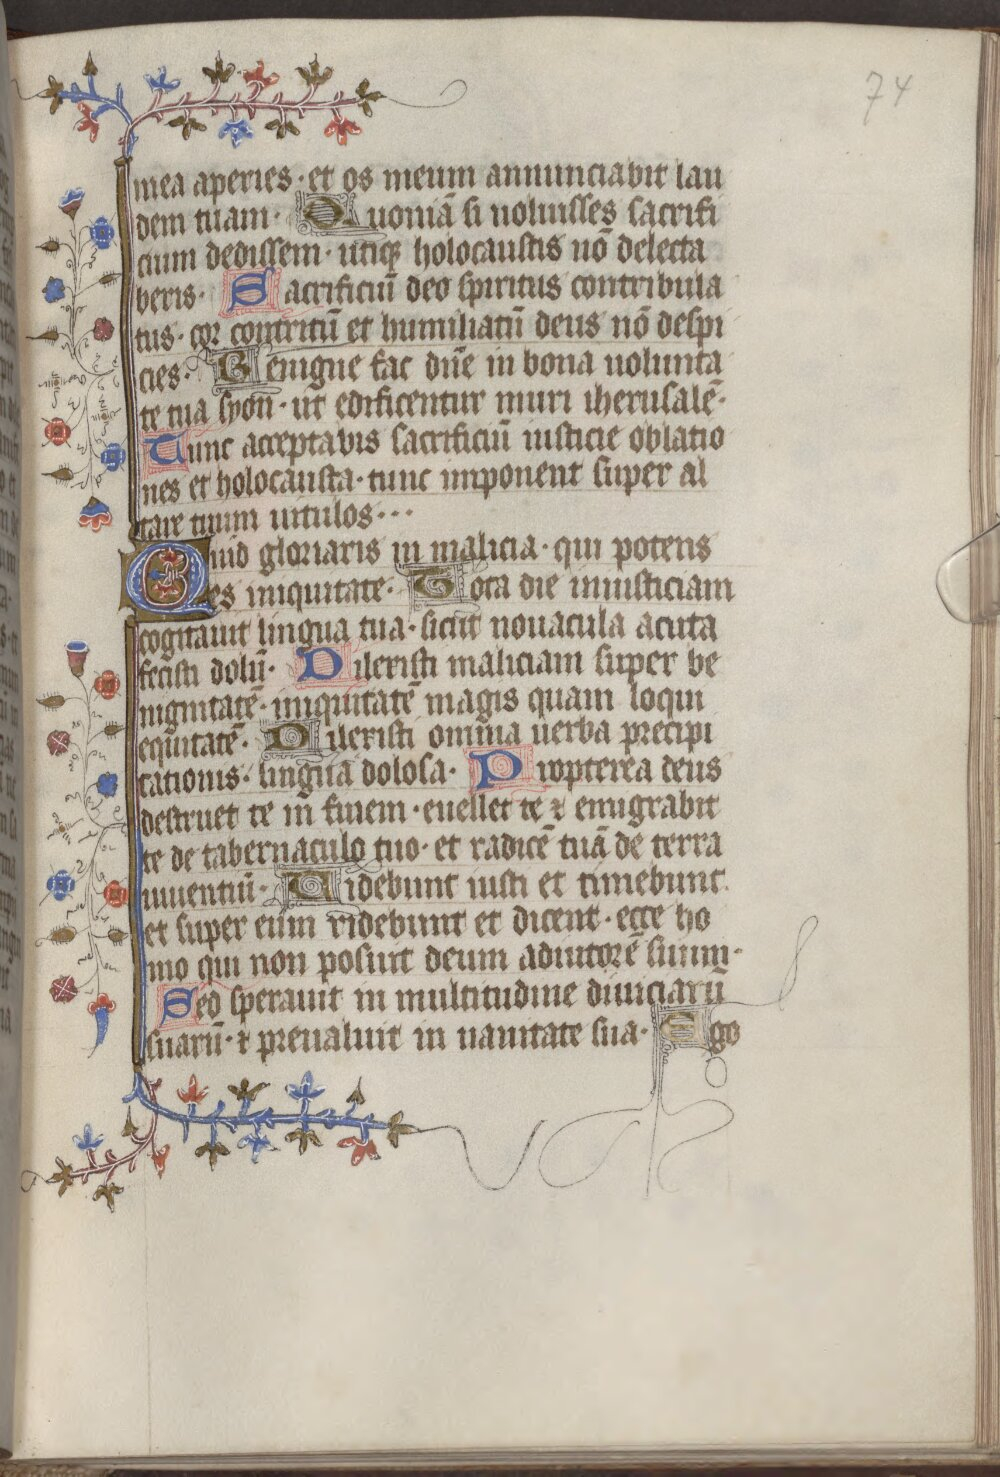 74
mea aperies · et os meum annunciabit lau
dem tuam · Quoniā si uoluisses sacrifi
cium dedissem · utiqꝫ holocaustis nō delecta
beris · Sacrificiū deo spiritus contribula
tus · cor contritū et humiliatū deus nō despi
cies · Benigne fac dn̄e in bona uolunta
te tua syon · ut edificentur muri iherusalē ·
Tunc acceptabis sacrificiū iusticie oblatio
nes et holocausta · tunc imponent super al
tare tuum uitulos · · ·
Quid gloriaris in malicia · qui potens
es iniquitate · Tota die iniusticiam
cogitauit lingua tua · sicut nouacula acuta
fecisti dolū · Dilexisti maliciam super be
nignitatē · iniquitatē magis quam loqui
equitatē · Dilexisti omnia uerba precipi
tationis · lingua dolosa · Propterea deus
destruet te in finem · euellet te ⁊ emigrabit
te de tabernaculo tuo · et radicē tuā de terra
uiuentiū · Uidebunt iusti et timebunt
et super eum ridebunt et dicent · ecce ho
mo qui non posuit deum adiutorē suum ·
Sed sperauit in multitudine diuiciarū
suarū · ⁊ preualuit in uanitate sua · Ego